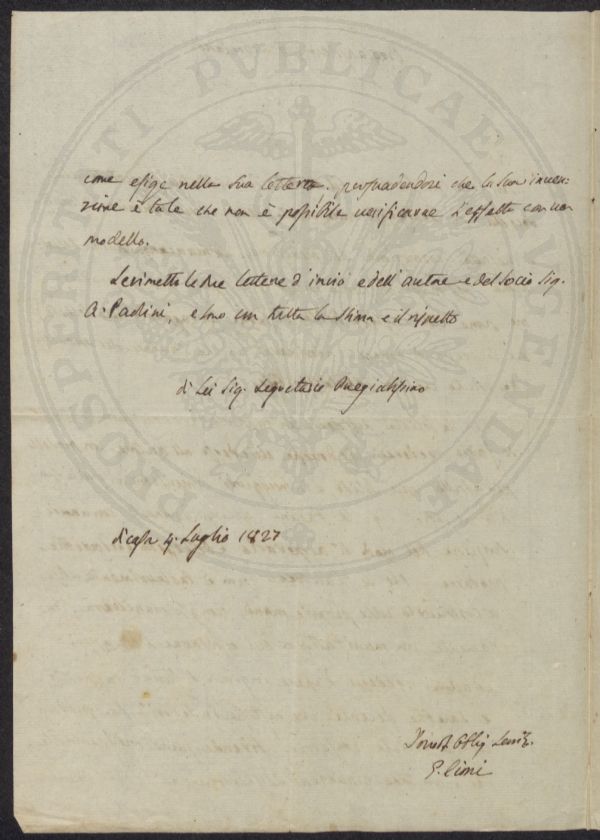 PROSPERITATI PUBLICAE AUGENDAE
come esige nella Sua lettera. persuadendosi che la sua inven=
zione è tale che non è possibile verificarne l'effetto con un
modello.
Le rimetto le due lettere d'invio e dell'autore e del Socio Sig.
A. Paolini, e sono con tutta la stima e il rispetto
di Lei Sig. Segretario Pregiatissimo
di casa 4. Luglio 1827
Obblig. Servit.